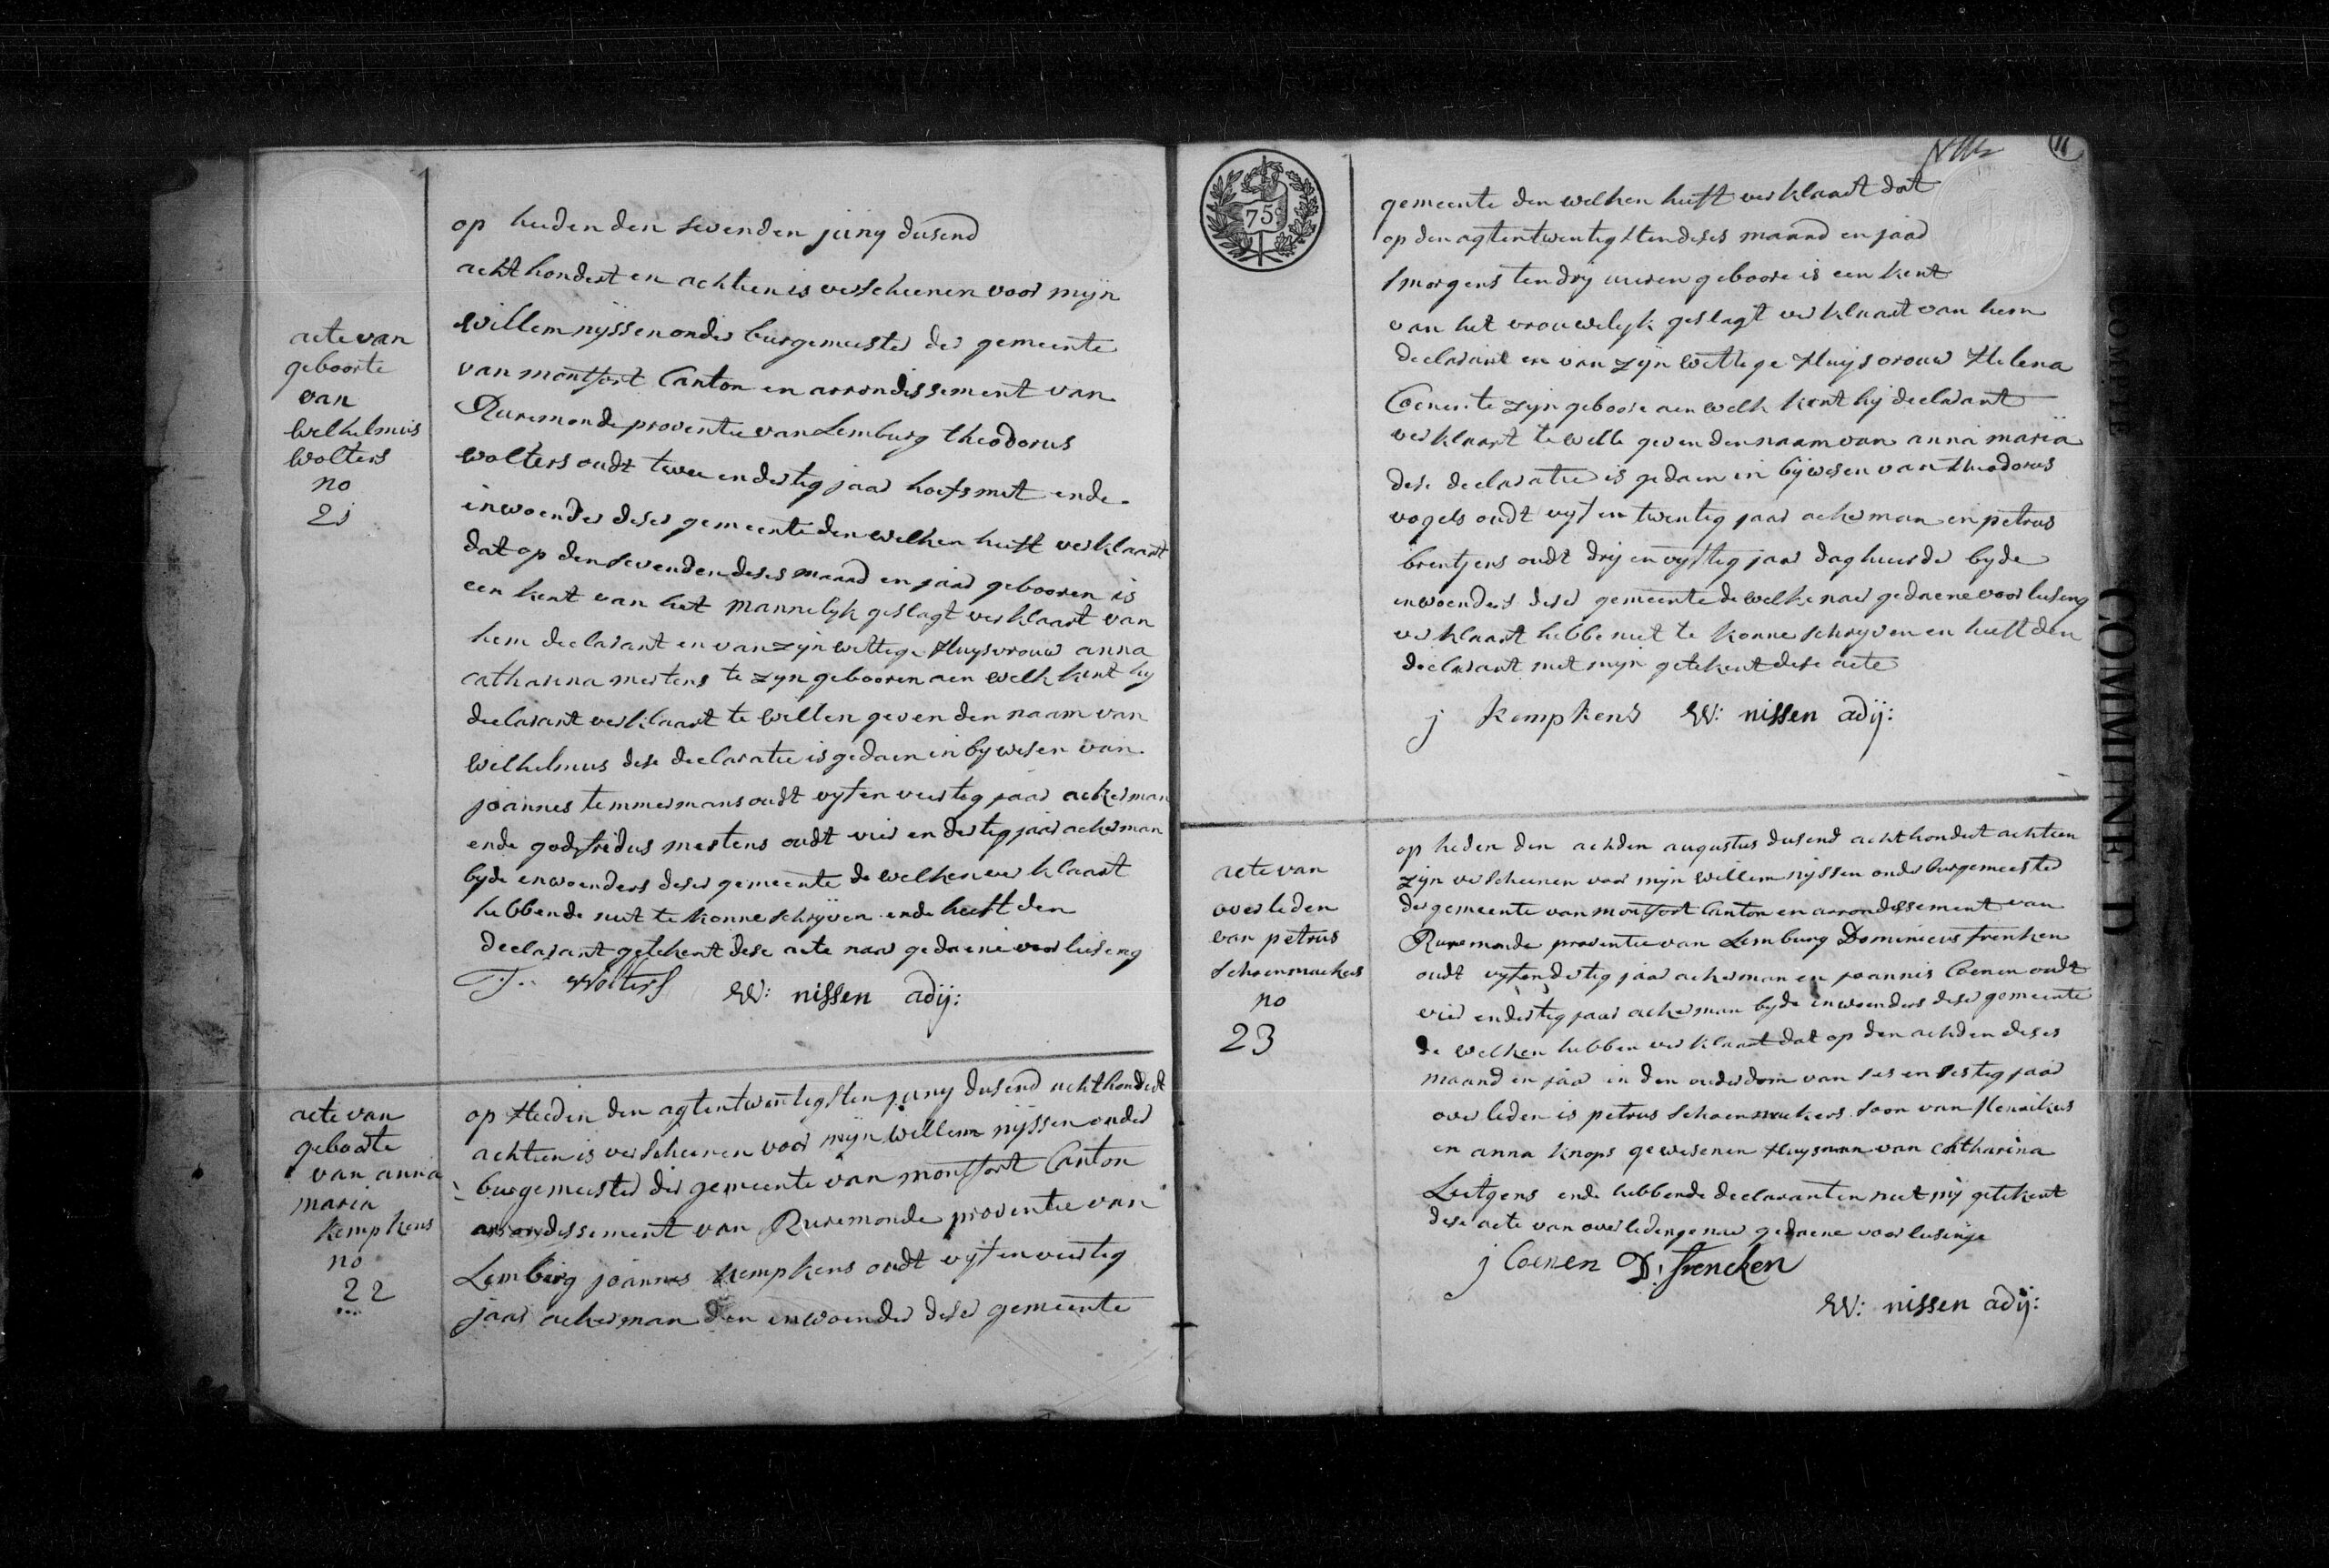 acte van
geboorte
van
welhelmus
wolters
no
21
op heeden den sevenden juny dusend
acht hondert en achtien is verscheenen voor mijn
willem nijssen onder burgemeester der gemeente
van montfort Canton en arrondissement van
Ruremonde proventie van Lemburg theodorus
wolters oudt twee endertig jaar hoefsmet ende
inwoender deser gemeente den welken heeft verklaart
dat op den sevenden deses maand en jaar gebooren is
een kent van het mannelyk geslagt verklaart van
hem declarant en van zyn wettege Huysvrouw anna
catharina mertens te zyn gebooren aen welk kent hy
declarant verklaart te wellen geven den naam van
wilhelmus dese declaratie is gedaen in bywesen van
joannes temmermans oudt vyf en veertig jaar ackerman
ende godefridus mertens oudt vier en dertig jaar ackerman
byde enwoenders deser gemeente de welken verklaart
hebbende niet te konne schryven ende heeft den
declarant getekent dese acte naer gedaene voorlieseng
T. Wolters W: nissen adij:
acte van
geboorte
van anna
maria
kempkens
no
22
op Heeden den agtentwentegsten juny dusend achthondert
achtien is verscheenen voor mijn willem nijssen onder
burgemeester der gemeente van montfort Canton
arrondissement van Ruremonde proventie van
Lemburg joannes kempkens oudt vyf en veertig
jaar ackerman den enwoender deser gemeente
11
75
gemeente den welken heeft verklaart dat
op den agtentwentigsten deses maand en jaar
smorgens ten dry uuren geboore is een kent
van het vrouwelyk geslagt verklaart van hem
declarant en van zyn wettege Huysvrouw Helena
Coenen te zyn geboore aen welk kent hij declarant
verklaart te welle geven den naam van anna maria
dese declaratie is gedaen in bijwesen van theodorus
vogels oudt vyf en twentig jaar ackerman en petrus
brentjens oudt drij en vyftig jaar daghuurder byde
enwoenders deser gemeente de welke naer gedaene voorlieseng
verklaart hebbe niet te konne schryven en heeft den
declarant met mijn getekent dese acte
j kempkens W: nissen adij:
acte van
overleden
van petrus
schoenmackers
no
23
op heden den achden augustus dusend achthondert achtien
zyn verscheenen voor mijn willem nijssen onder burgemeester
der gemeente van montfort Canton en arrondissement van
Ruremonde proventie van Lemburg Dominicus frenken
oudt vyf en dertig jaar ackerman en joannis Coenen oudt
vier endertig jaar ackerman byde inwoenders deser gemeente
de welken hebben verklaart dat op den achden deses
maand en jaar in den ouderdom van ses en sestig jaar
overleden is petrus schoenmackers soon van Henrikus
en anna knops gewesenen Huysman van Catharina
Luitgens ende hebbende declaranten met mij getekent
dese acte van overledenge naer gedaene voorlesinge
j Coenen D. frencken
W: nissen adij:
COMPTE
COMMUNE D